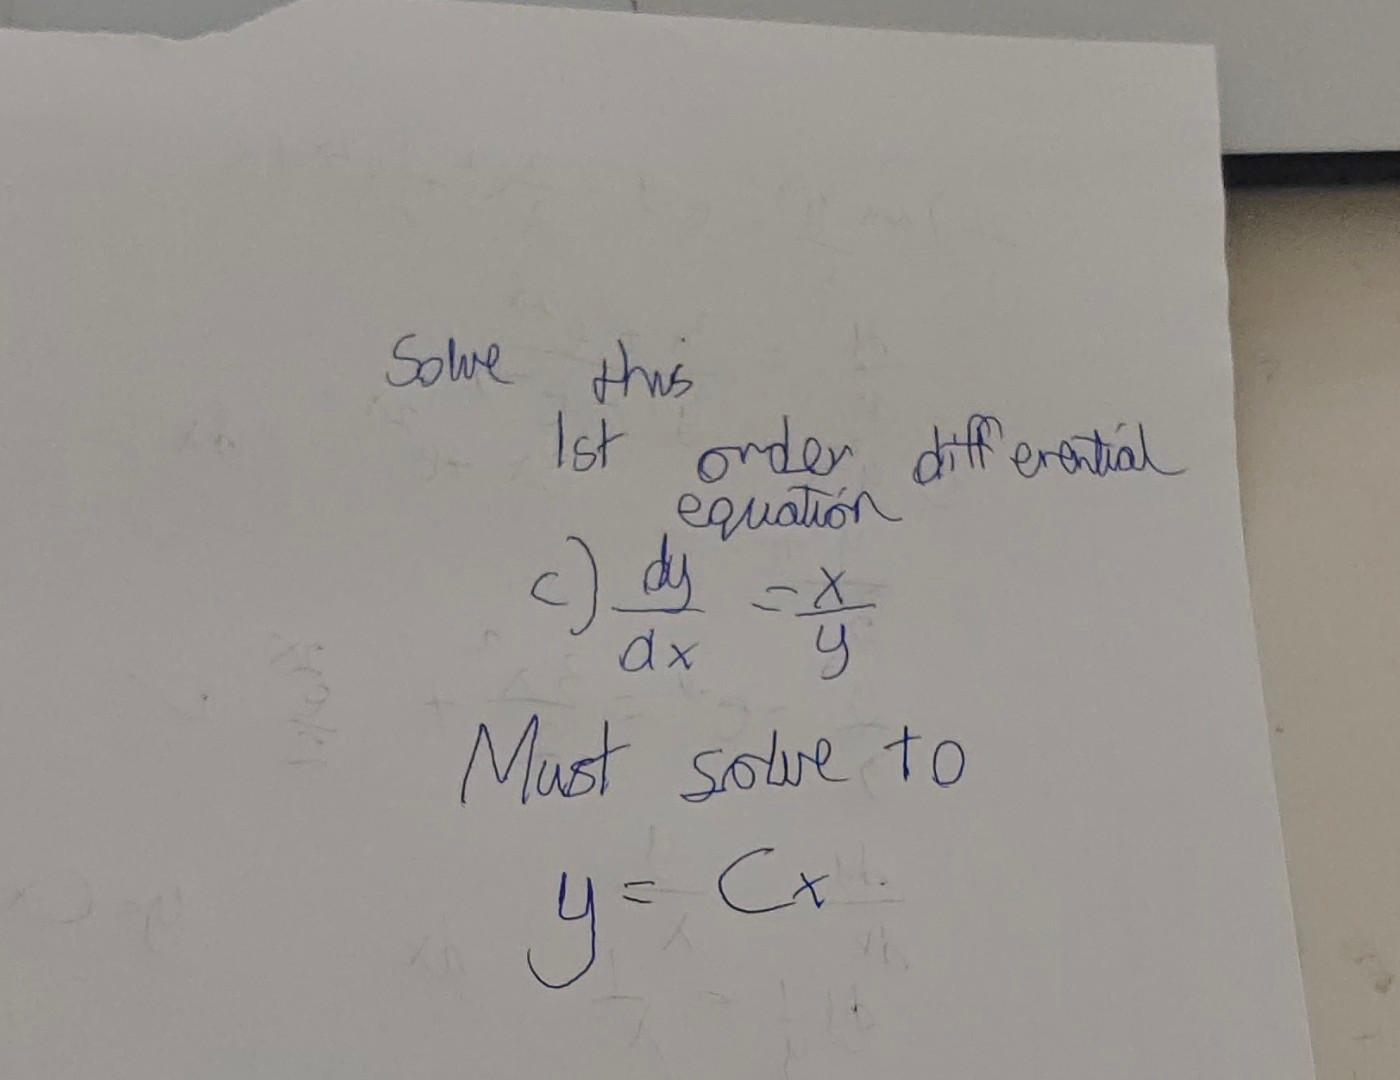 Solve this
1st order differential
equation
c) dy/dx = x/y
Must solve to
y = Cx